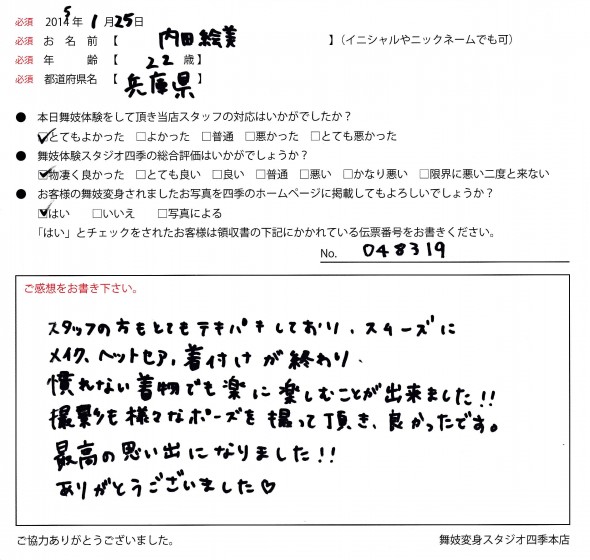 必須 2015年 1月25日
必須 お名前【 内田絵美 】（イニシャルやニックネームでも可）
必須 年齢【 22歳】
必須 都道府県名【 兵庫県
● 本日舞妓体験をして頂き当店スタッフの対応はいかがでしたか？
☑とてもよかった □よかった □普通 □悪かった □とても悪かった
● 舞妓体験スタジオ四季の総合評価はいかがでしょうか？
☑物凄く良かった □とても良い □良い □普通 □悪い □かなり悪い □限界に悪い二度と来ない
● お客様の舞妓変身されましたお写真を四季のホームページに掲載してもよろしいでしょうか？
☑はい □いいえ □写真による
「はい」とチェックをされたお客様は領収書の下記にかかれている伝票番号をお書きください。
No. 048319
ご感想をお書き下さい。
スタッフの方もとてもテキパキしており、スムーズに
メイク、ヘットセア、着付けが終わり、
慣れない着物でも楽に楽しむことが出来ました!!
撮影も様々なポーズを撮って頂き、良かったです。
最高の思い出になりました!!
ありがとうございました♡
ご協力ありがとうございました。
舞妓変身スタジオ四季本店